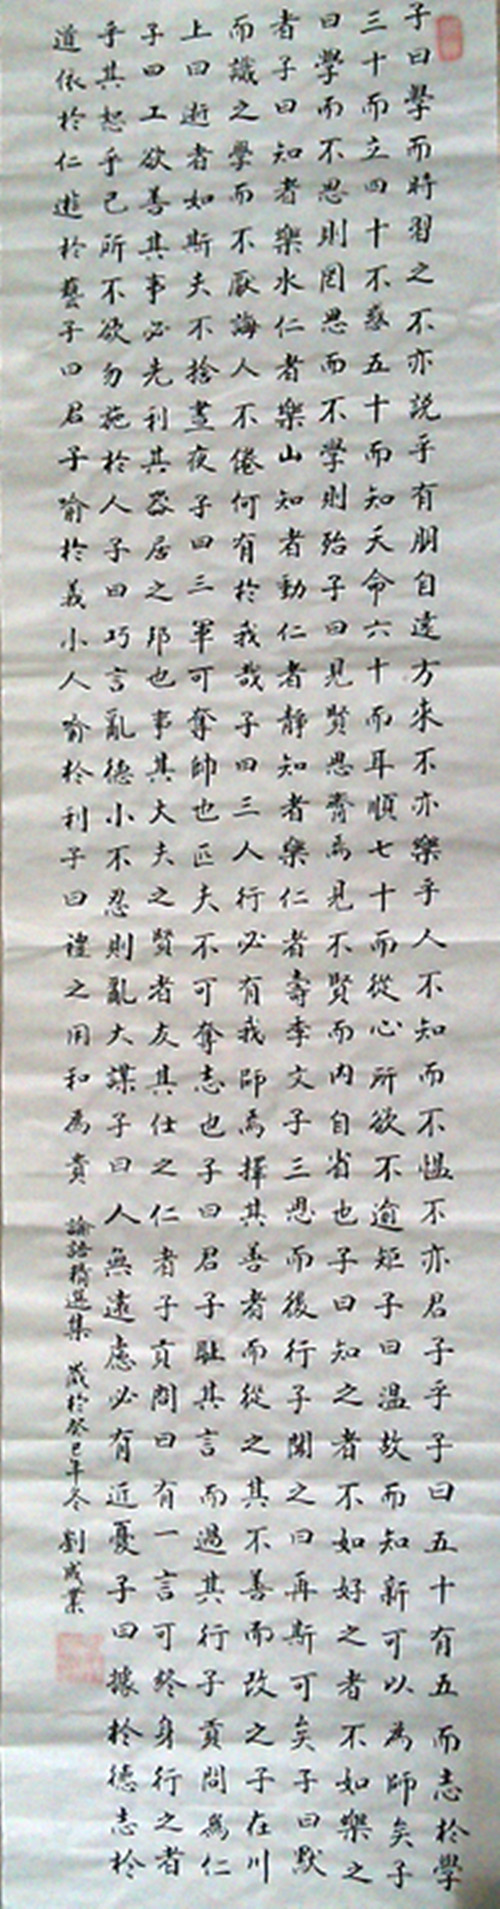 子曰學而時習之不亦説乎有朋自遠方來不亦樂乎人不知而不愠不亦君子乎子曰五十有五而志於學
三十而立四十不惑五十而知天命六十而耳順七十而從心所欲不逾矩子曰温故而知新可以為師矣子
曰學而不思則罔思而不學則殆子曰見賢思齊焉見不賢而内自省也子曰知之者不如好之者不如樂之
者子曰知者樂水仁者樂山知者動仁者靜知者樂仁者壽季文子三思而後行子聞之曰再斯可矣子曰默
而識之學而不厭誨人不倦何有於我哉子曰三人行必有我師焉擇其善者而從之其不善而改之子在川
上曰逝者如斯夫不捨晝夜子曰三軍可奪帥也匹夫不可奪志也子曰君子恥其言而過其行子貢問為仁
子曰工欲善其事必先利其器居之邦也事其大夫之賢者友其仕之仁者子貢問曰有一言可終身行之者
乎其恕乎己所不欲勿施於人子曰巧言亂德小不忍則亂大謀子曰人無遠慮必有近憂子曰據於德志於
道依於仁遊於藝子曰君子喻於義小人喻於利子曰禮之用和為貴 論語精選集 歲於癸巳年冬劉成業